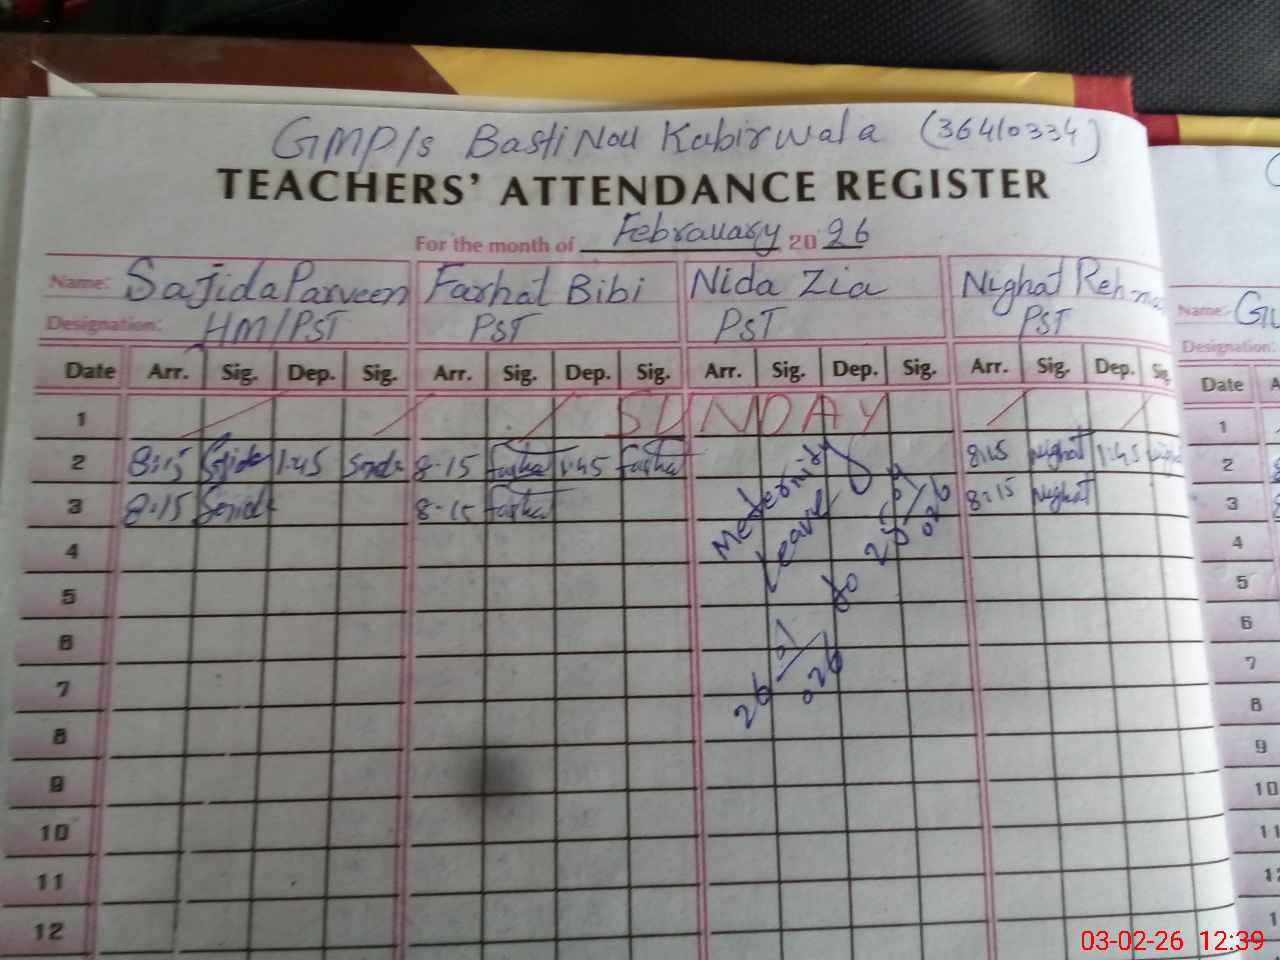 GMP/s Basti Nou Kabirwala (36410334)
TEACHERS' ATTENDANCE REGISTER
For the month of Febrauary 20 26
Name: Sajida Parveen Farhat Bibi Nida Zia Nighat Rehma
Designation: HM/PST PST PST PST
Date Arr. Sig. Dep. Sig. Arr. Sig. Dep. Sig. Arr. Sig. Dep. Sig. Arr. Sig. Dep. Sig.
1 SUNDAY
2 8:15 1:45 8-15 Farhat 1:45 Farhat 8:15 Nighat 1:45
3 8:15 8-15 Farhat 8:15 Nighat
Meternity
Leave
26/01/026 to 25/04/026
4
5
6
7
8
9
10
11
12
Name: Gu
Designation:
Date A
1
2
3
4
5
6
7
8
9
10
11
03-02-26 12:39